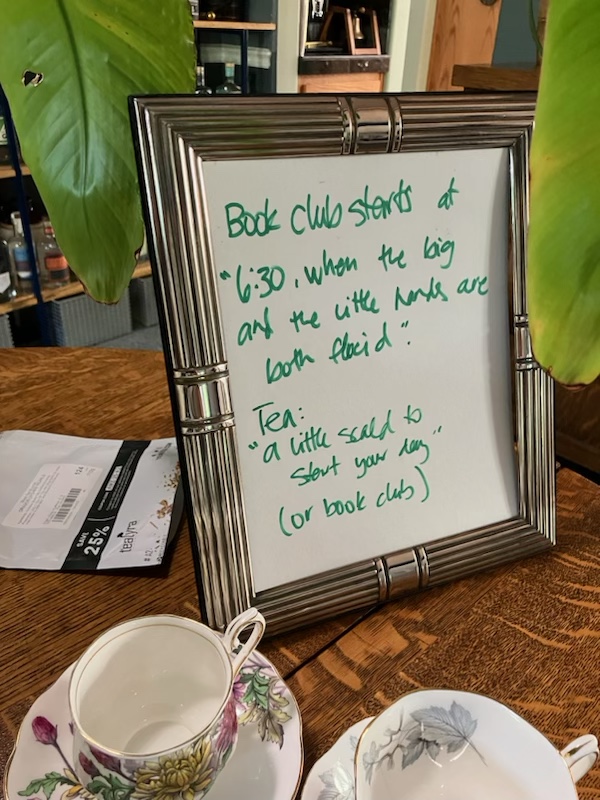 Book club starts at
"6:30, when the big
and the little hands are
both flacid".
Tea:
"a little scald to
start your day"
(or book club)
SAVE
25%
tealyra